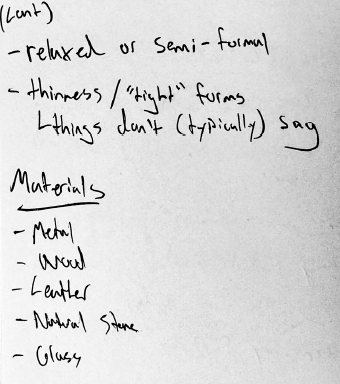 (Cont)
- relaxed or semi-formal
- thinness / "tight" forms
things don't (typically) sag
Materials
- Metal
- Wood
- Leather
- Natural Stone
- Glass